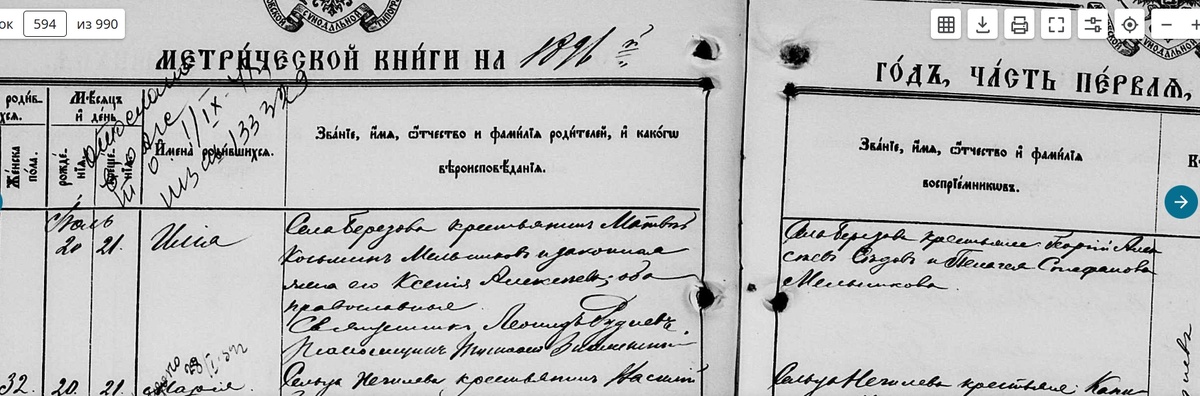 594 из 990
МЕТРИ́ЧЕСКОЙ КНИ́ГИ НА 1896 й
ГО́ДЪ, ЧА́СТЬ ПЕ́РВАЯ,
роди́в-
хся.
Же́нска
по́ла.
Мѣ́сяцъ
и҆ де́нь
рожде́-
нїя.
креще-
нїя.
И҆мена̀ роди́вшихся.
Зва́нїе, и҆́мя, ѻ҆́тчество и фами́лїя роди́телей, и҆ како́гѡ
вѣроисповѣ́данїя.
Зва́нїе, и҆́мя, ѻ҆́тчество и҆ фами́лїя
воспрїе́мникѡвъ.
Июль
20 21. Илія
Села Березова крестьянинъ Матвей
Косьминъ Мельниковъ и законная
жена его Ксенія Алексеева; оба
православные.
Священникъ Леонидъ
Псаломщикъ
Села Березова крестьяне: Георгій Алек
сеевъ и Пелагея Стефанова
Мельникова.
32. 20. 21. Марія.
Сельца Нечилева крестьянинъ Василій
Сельца Нечилева крестьяне: